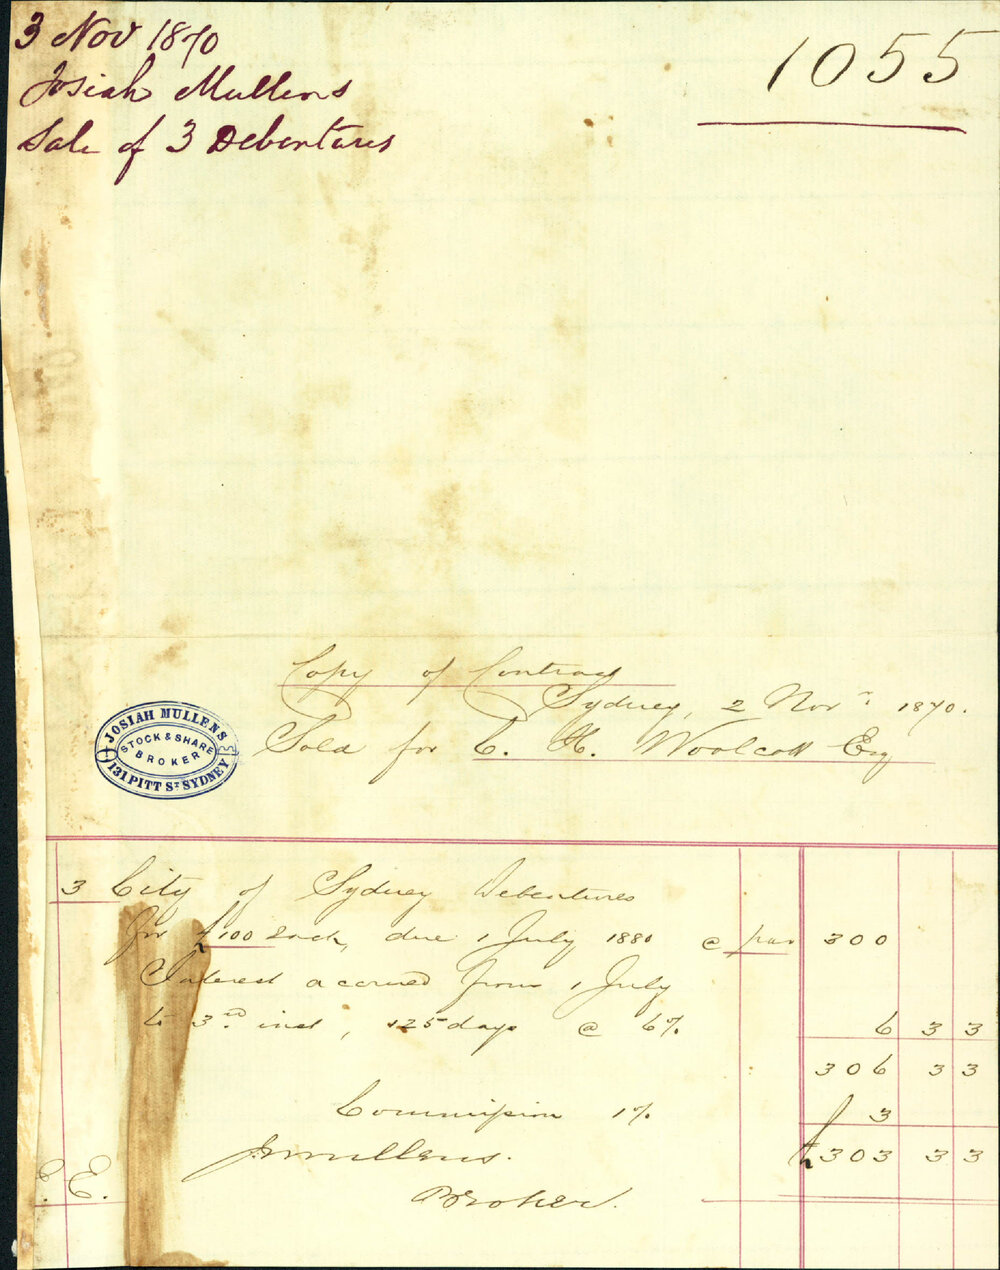 3 Nov 1870
Josiah Mullens
Sale of 3 Debentures
1055
Copy of Contract
Sydney, 2 Novr 1870.
Sold for C. H. Woolcott Esq
JOSIAH MULLENS
STOCK & SHARE
BROKER
131 PITT ST SYDNEY
3 City of Sydney Debentures
for £100 each, due 1 July 1880 @ par 300
Interest accrued from 1 July
to 3rd inst, 125 days @ 6% 6 3 3
306 3 3
Commission 1% 3
£303 3 3
J Mullens.
Broker.
E. E.